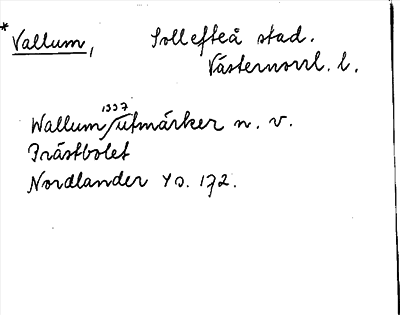 * Vallum, Sollefteå stad.
Västernorrl. l.
1997
Wallum/utmärker n. v.
Prästbolet
Nordlander YO. 172.